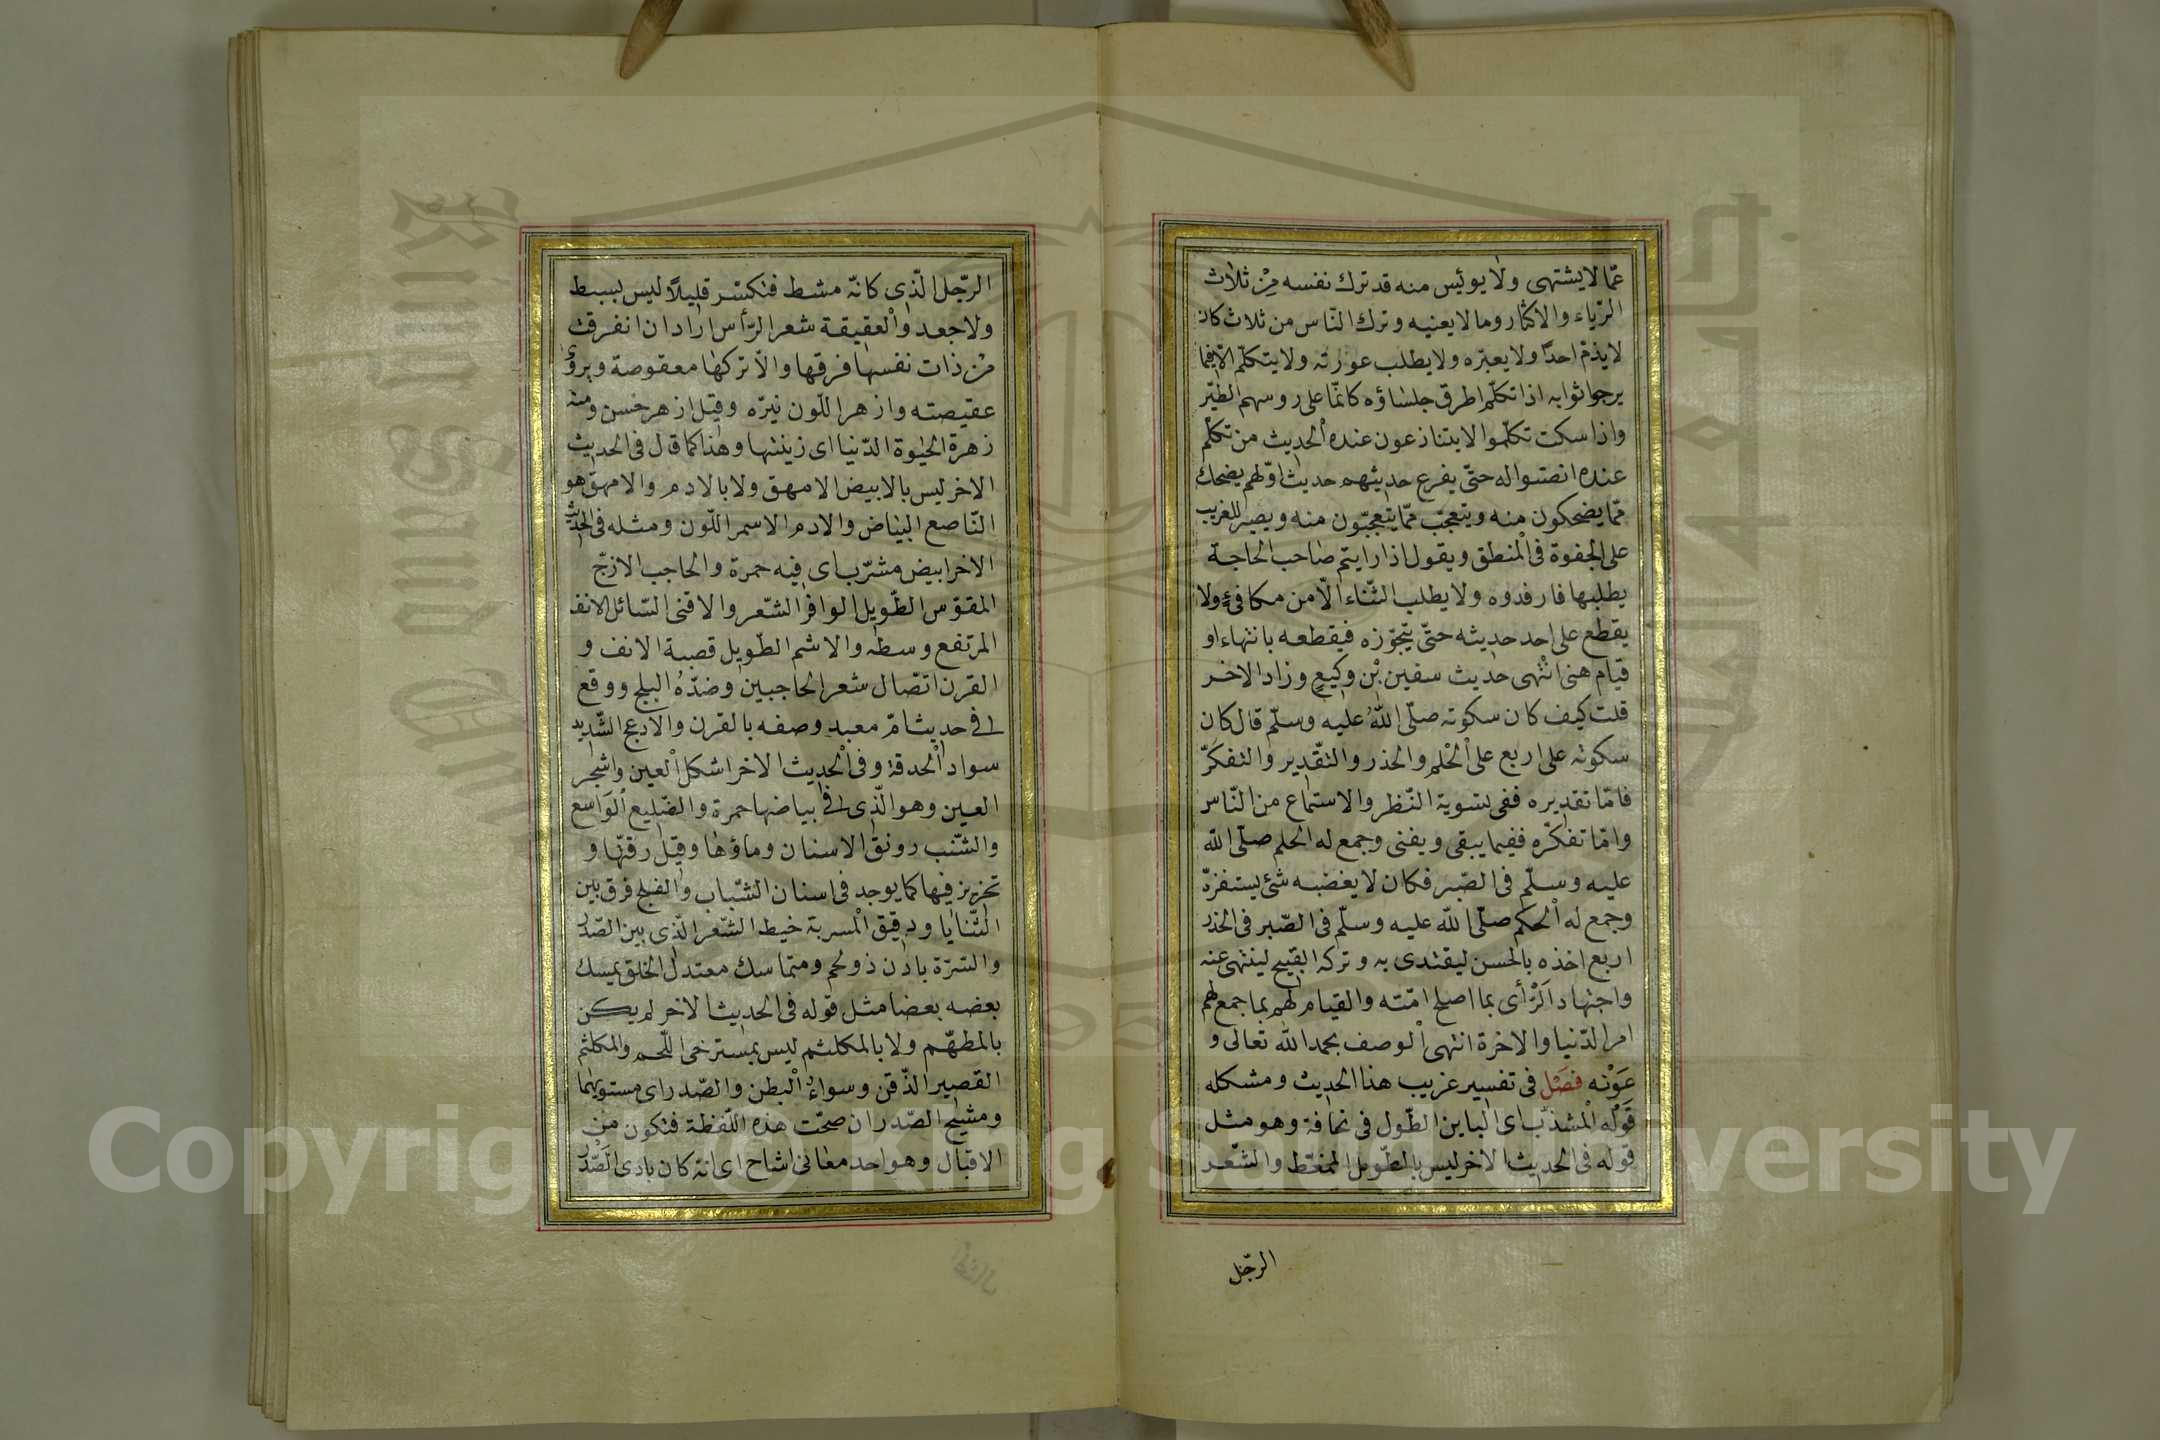 عمّا لا يشتهى ولا يوئيس منه قد ترك نفسه مِنْ ثلاث
الرّياء والاكثار وما لا يعنيه وترك النّاس من ثلاث كان
لا يذمّ احدًا ولا يعيّره ولا يطلب عورته ولا يتكلّم الّا فيما
يرجوا ثوابه اذا تكلّم اطرق جلساؤه كانّما على روسهم الطّير
واذا سكت تكلّموا لا يتنازعون عنده الحديث من تكلّم
عنده انصتوا له حتّى يفرغ حديثهم حديث اوّلهم يضحك
ممّا يضحكون منه ويتعجّب ممّا يتعجّبون منه ويصبر للغريب
على الجفوة فى المنطق ويقول اذا رايتم صاحب الحاجة
يطلبها فارفدوه ولا يطلب الثّناء الّا من مكافئٍ ولا
يقطع على احد حديثه حتّى يتجوّزه فيقطعه بانتهاء او
قيام هنى انتهى حديث سفين بْن وكيعٍ وزاد الاخر
قلت كيف كان سكوته صلّى اللّٰهُ عليه وسلّم قال كان
سكوته على اربع على الحْلم والحذر والتّقدير والتفكّر
فامّا تقديره ففى تسوية النّظر والاستماع من النّاس
وامّا تفكّره ففيما يبقى ويفنى وجمع له الحلم صلّى اللّه
عليه وسلّم فى الصّبر فكان لا يغضبه شئ يستفزّه
وجمع له الحكم صلّى اللّه عليه وسلّم فى الصّبر فى الحذر
اربع اخذه بالحسن ليقتدى به وتركه القبيح لينتهى عنه
واجتهاد الرّأى بما اصلح امّته والقيام لهم بما جمع لهم
امر الدّنيا والاخرة انتهى الوصف بحمد اللّٰه تعالى و
عَوْنه فصَلْ فى تفسير غريب هذا الحديث ومشكله
قَوْله الْمشذّب اى الباين الطّول فى نحافة وهو مثل
قوله فى الحديث الاخر ليس بالطّويل الممّغط والشّعر
الرّجل
الرّجل الّذى كانّه مشط فتكسّر قليلًا ليس بسبط
ولا جعد والْعقيقة شعر الرّأس اراد ان انفرقت
مْن ذات نفسها فرقها والّا تركها معقوصة ويروى
عقيصته وازهر اللّون نيّره وقيل ازهر حسن ومنه
زهرة الحيٰوة الدّنيا اى زينتها وهٰذا كما قال فى الحديث
الاخر ليس بالابيض الامهق ولا بالادم والامهق هو
النّاصع البيٰاض والادم الاسمر اللّون ومثله فى الحديث
الاخر ابيض مشرّب اى فيه حمرة والحاجب الازجّ
المقوّس الطّويل الوافر الشّعر والاقنى السّائل الانف
المرتفع وسطه والاشم الطّويل قصبة الانف و
القرن اتّصال شعر الحاجبين وضدّهُ البلج ووقع
فى حديث امّ معبد وصفه بالقرن والادعج الشّديد
سواد الْحدقة وفى الْحديث الاخر اشكل الْعين واشجر
العين وهو الّذى فى بياضها حمرة والضّليع الْوَاسع
والشّنب رونق الاسنان وماؤها وقيل رقتها و
تحزيز فيها كما يوجد فى اسنان الشّباب والفلج فرق بين
الثّنايٰا ودقيق الْمسربة خيط الشّعر الّذى بين الصّدر
والسّرّة بادن ذو لحم ومتماسك معتدل الخلق يمسك
بعضه بعضا مثل قوله فى الحديث الاخر لم يكن
بالمطهّم ولا بالمكلثم ليس بمسترخى اللّحم والمكلثم
القصير الذّقن وسواءُ الْبطن والصّدر اى مستويهما
ومشيح الصّدر ان صحّت هذه اللّفظة فتكون من
الاقبال وهو احد معٰانى اشاح اى انّه كان بادى الصّدْر
Copyright © King Saud University